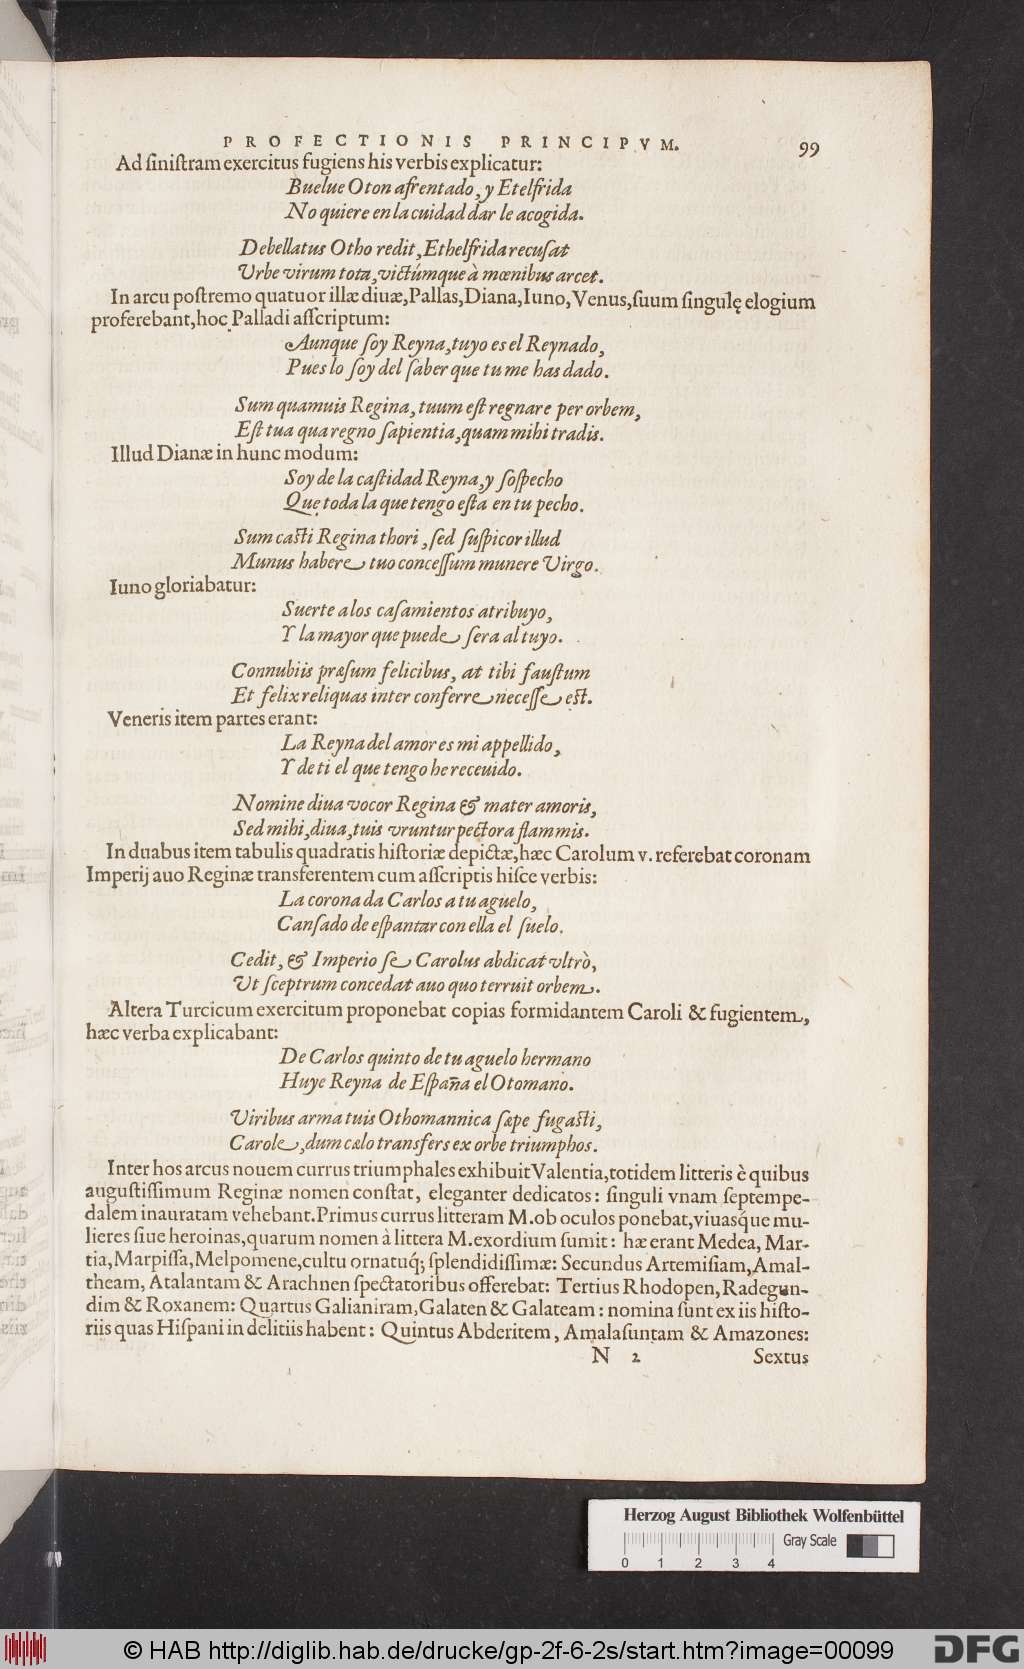 PROFECTIONIS PRINCIPVM. 99
Ad sinistram exercitus fugiens his verbis explicatur:
Buelue Oton afrentado, y Etelfrida
No quiere en la cuidad dar le acogida.
Debellatus Otho redit, Ethelfrida recusat
Vrbe virum tota, victúmque à mœnibus arcet.
In arcu postremo quatuor illæ diuæ, Pallas, Diana, Iuno, Venus, suum singulę elogium
proferebant, hoc Palladi asscriptum:
Aunque soy Reyna, tuyo es el Reynado,
Pues lo soy del saber que tu me has dado.
Sum quamuis Regina, tuum est regnare per orbem,
Est tua qua regno sapientia, quam mihi tradis.
Illud Dianæ in hunc modum:
Soy de la castidad Reyna, y sospecho
Que toda la que tengo esta en tu pecho.
Sum casti Regina thori, sed suspicor illud
Munus habere tuo concessum munere Virgo.
Iuno gloriabatur:
Suerte a los casamientos atribuyo,
Y la mayor que puede sera al tuyo.
Connubiis præsum felicibus, at tibi faustum
Et felix reliquas inter conferre necesse est.
Veneris item partes erant:
La Reyna del amor es mi appellido,
Y de ti el que tengo he receuido.
Nomine diua vocor Regina & mater amoris,
Sed mihi, diua, tuis vruntur pectora flammis.
In duabus item tabulis quadratis historiæ depictæ, hæc Carolum v. referebat coronam
Imperij auo Reginæ transferentem cum asscriptis hisce verbis:
La corona da Carlos a tu aguelo,
Cansado de espantar con ella el suelo.
Cedit, & Imperio se Carolus abdicat vltrò,
Ut sceptrum concedat auo quo terruit orbem.
Altera Turcicum exercitum proponebat copias formidantem Caroli & fugientem,
hæc verba explicabant:
De Carlos quinto de tu aguelo hermano
Huye Reyna de España el Otomano.
Viribus arma tuis Othomannica sæpe fugasti,
Carole, dum cælo transfers ex orbe triumphos.
Inter hos arcus nouem currus triumphales exhibuit Valentia, totidem litteris è quibus
augustissimum Reginæ nomen constat, eleganter dedicatos: singuli vnam septempe-
dalem inauratam vehebant. Primus currus litteram M. ob oculos ponebat, viuasq́ue mu-
lieres siue heroinas, quarum nomen à littera M. exordium sumit: hæ erant Medea, Mar-
tia, Marpissa, Melpomene, cultu ornatuq́; splendidissimæ: Secundus Artemisiam, Amal-
theam, Atalantam & Arachnen spectatoribus offerebat: Tertius Rhodopen, Radegun-
dim & Roxanem: Quartus Galianiram, Galaten & Galateam: nomina sunt ex iis histo-
riis quas Hispani in delitiis habent: Quintus Abderitem, Amalasuntam & Amazones:
N 2 Sextus
Herzog August Bibliothek Wolfenbüttel
Gray Scale
0 1 2 3 4
© HAB http://diglib.hab.de/drucke/gp-2f-6-2s/start.htm?image=00099
DFG